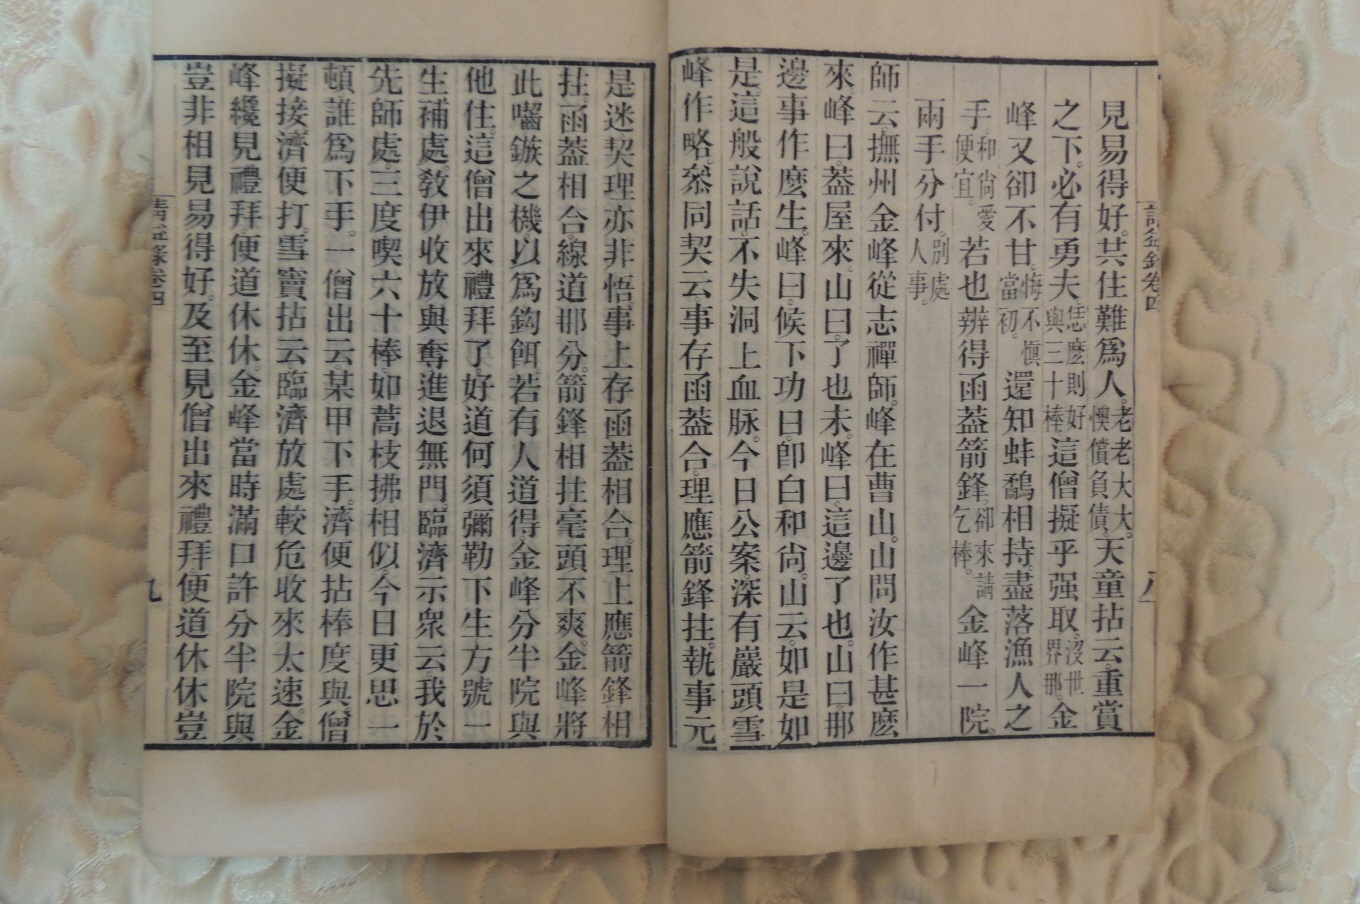 見易得好。共住難爲人。老老大大。懊債負債。天童拈云。重賞
之下。必有勇夫。恁麽則好與三十棒。這僧擬乎强取。沒世界那。金
峰又卻不甘。悔不愼當初。還知蚌鷸相持。盡落漁人之
手。和尙愛便宜。若也辨得函葢箭鋒。卻來請乞棒。金峰一院。
兩手分付。別處人事。
師云。撫州金峰從志禪師。峰在曹山。山問汝作甚麽
來。峰曰。葢屋來。山曰。了也未。峰曰。這邊了也。山曰。那
邊事作麽生。峰曰。候下功日。卽白和尙。山云。如是如
是。這般說話。不失洞上血脉。今日公案。深有巖頭雪
峰作略。叅同契云。事存函葢合。理應箭鋒拄。執事元
是迷。契理亦非悟。事上存函葢相合。理上應箭鋒相
拄。函葢相合線道那分。箭鋒相拄毫頭不爽。金峰將
此嚙鏃之機。以爲鈎餌。若有人道得。金峰分半院與
他住。這僧出來禮拜了。好道何須彌勒下生方號一
生補處。敎伊收放與奪進退無門。臨濟示衆云。我於
先師處。三度喫六十棒。如蒿枝拂相似。今日更思一
頓。誰爲下手。一僧出云。某甲下手。濟便拈棒度與僧
擬接。濟便打。雪竇拈云。臨濟放處較危。收來太速。金
峰纔見禮拜。便道休休。金峰當時滿口許分半院與
豈非相見易得好。及至見僧出來禮拜便道休休。豈
請益錄卷四
八
青益錄卷四
九